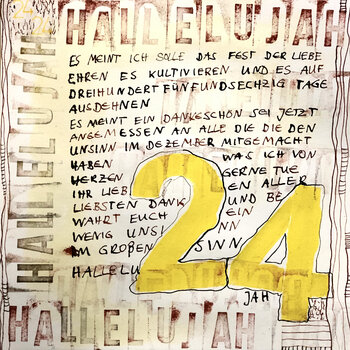 24
HALLELUJAH
HALLELUJAH
ES MEINT ICH SOLLE DAS FEST DER LIEBE
EHREN ES KULTIVIEREN UND ES AUF
DREIHUNDERTFÜNFUNDSECHZIG TAGE
AUSDEHNEN
ES MEINT EIN DANKESCHÖN SEI JETZT
ANGEMESSEN AN ALLE DIE DIE DEN
UNSINN IM DEZEMBER MITGEMACHT
HABEN WAS ICH VON
HERZEN GERNE TUE
IHR LIEB EN ALLER
LIEBSTEN DANK UND BE
WAHRT EUCH EIN
WENIG UNSI NN
IM GROßEN SINN
HALLELU
JAH
24
HALLELUJAH